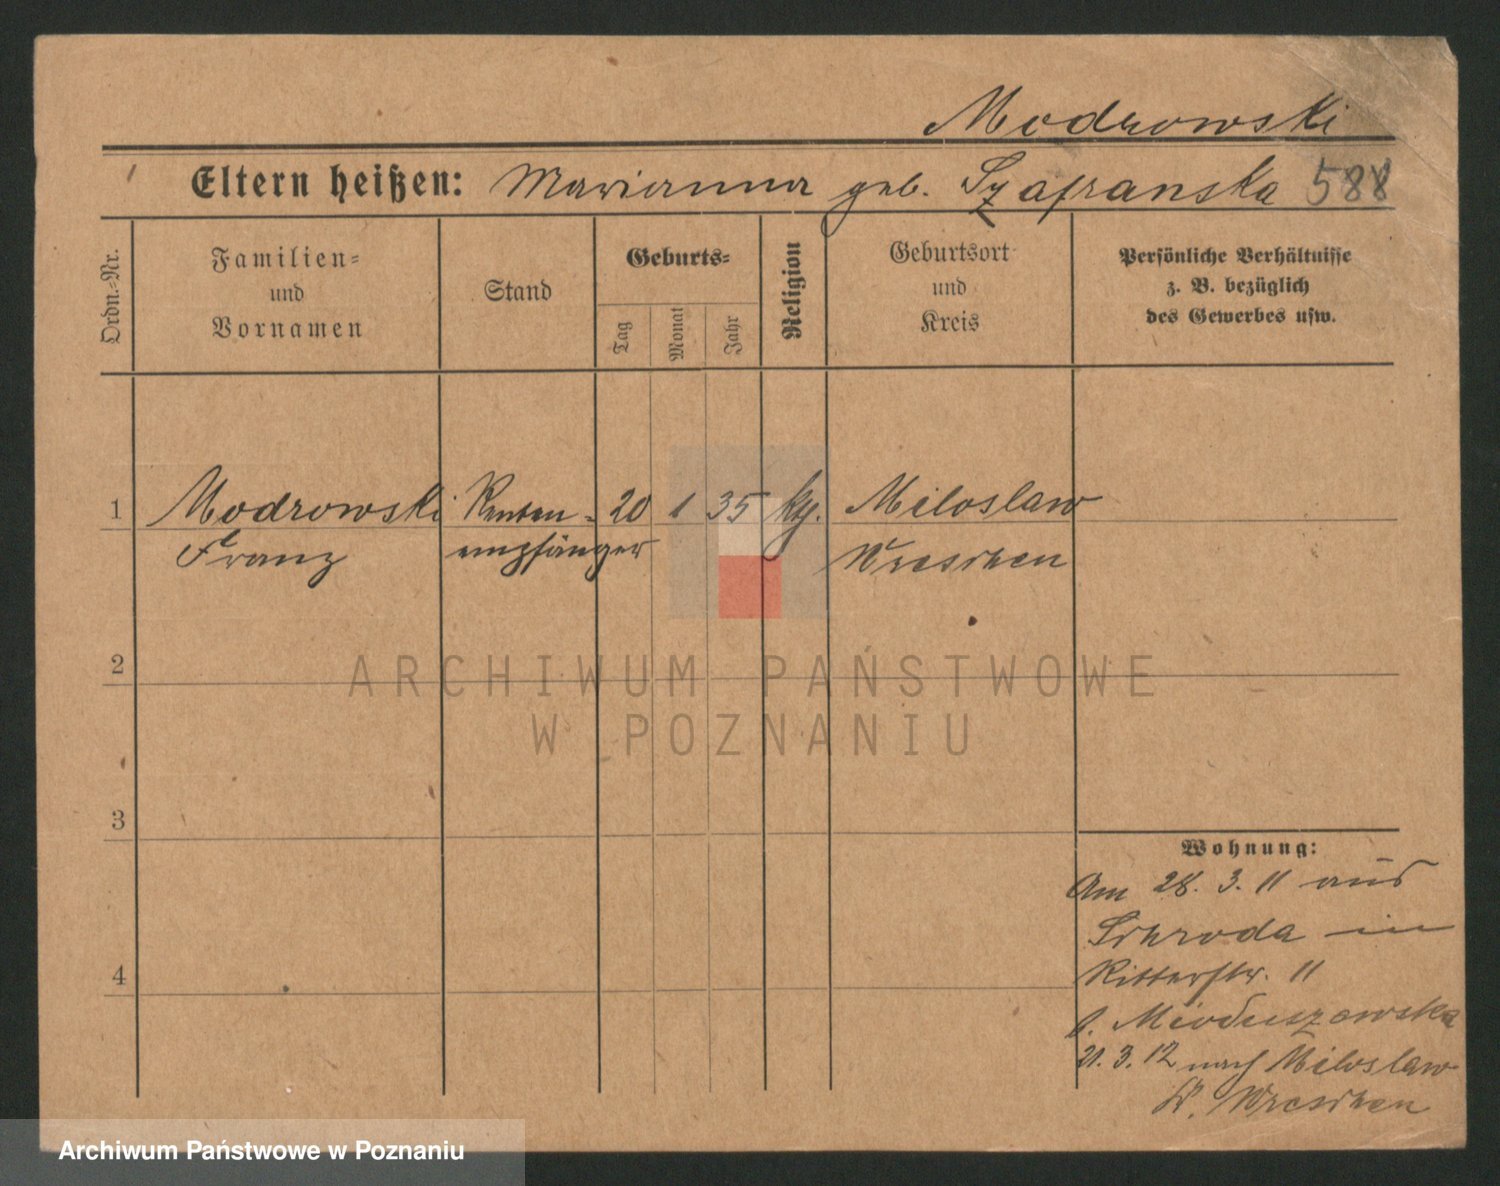 Modrowski
Eltern heißen: Marianna geb. Szafranska 588
Ordn.-Nr.
Familien-
und
Vornamen
Stand
Geburts-
Tag
Monat
Jahr
Religion
Geburtsort
und
Kreis
Persönliche Verhältnisse
z. B. bezüglich
des Gewerbes usw.
1 Modrowski Renten- 20 1 35 kth. Miloslaw
Franz empfänger Wreschen
2
ARCHIWUM PAŃSTWOWE
W POZNANIU
3
Wohnung:
Am 28. 3. 11 aus
Schroda in
4
Ritterstr. 11
b. Mioduszewska
21. 3. 12 nach Miloslaw
Kr. Wreschen
Archiwum Państwowe w Poznaniu